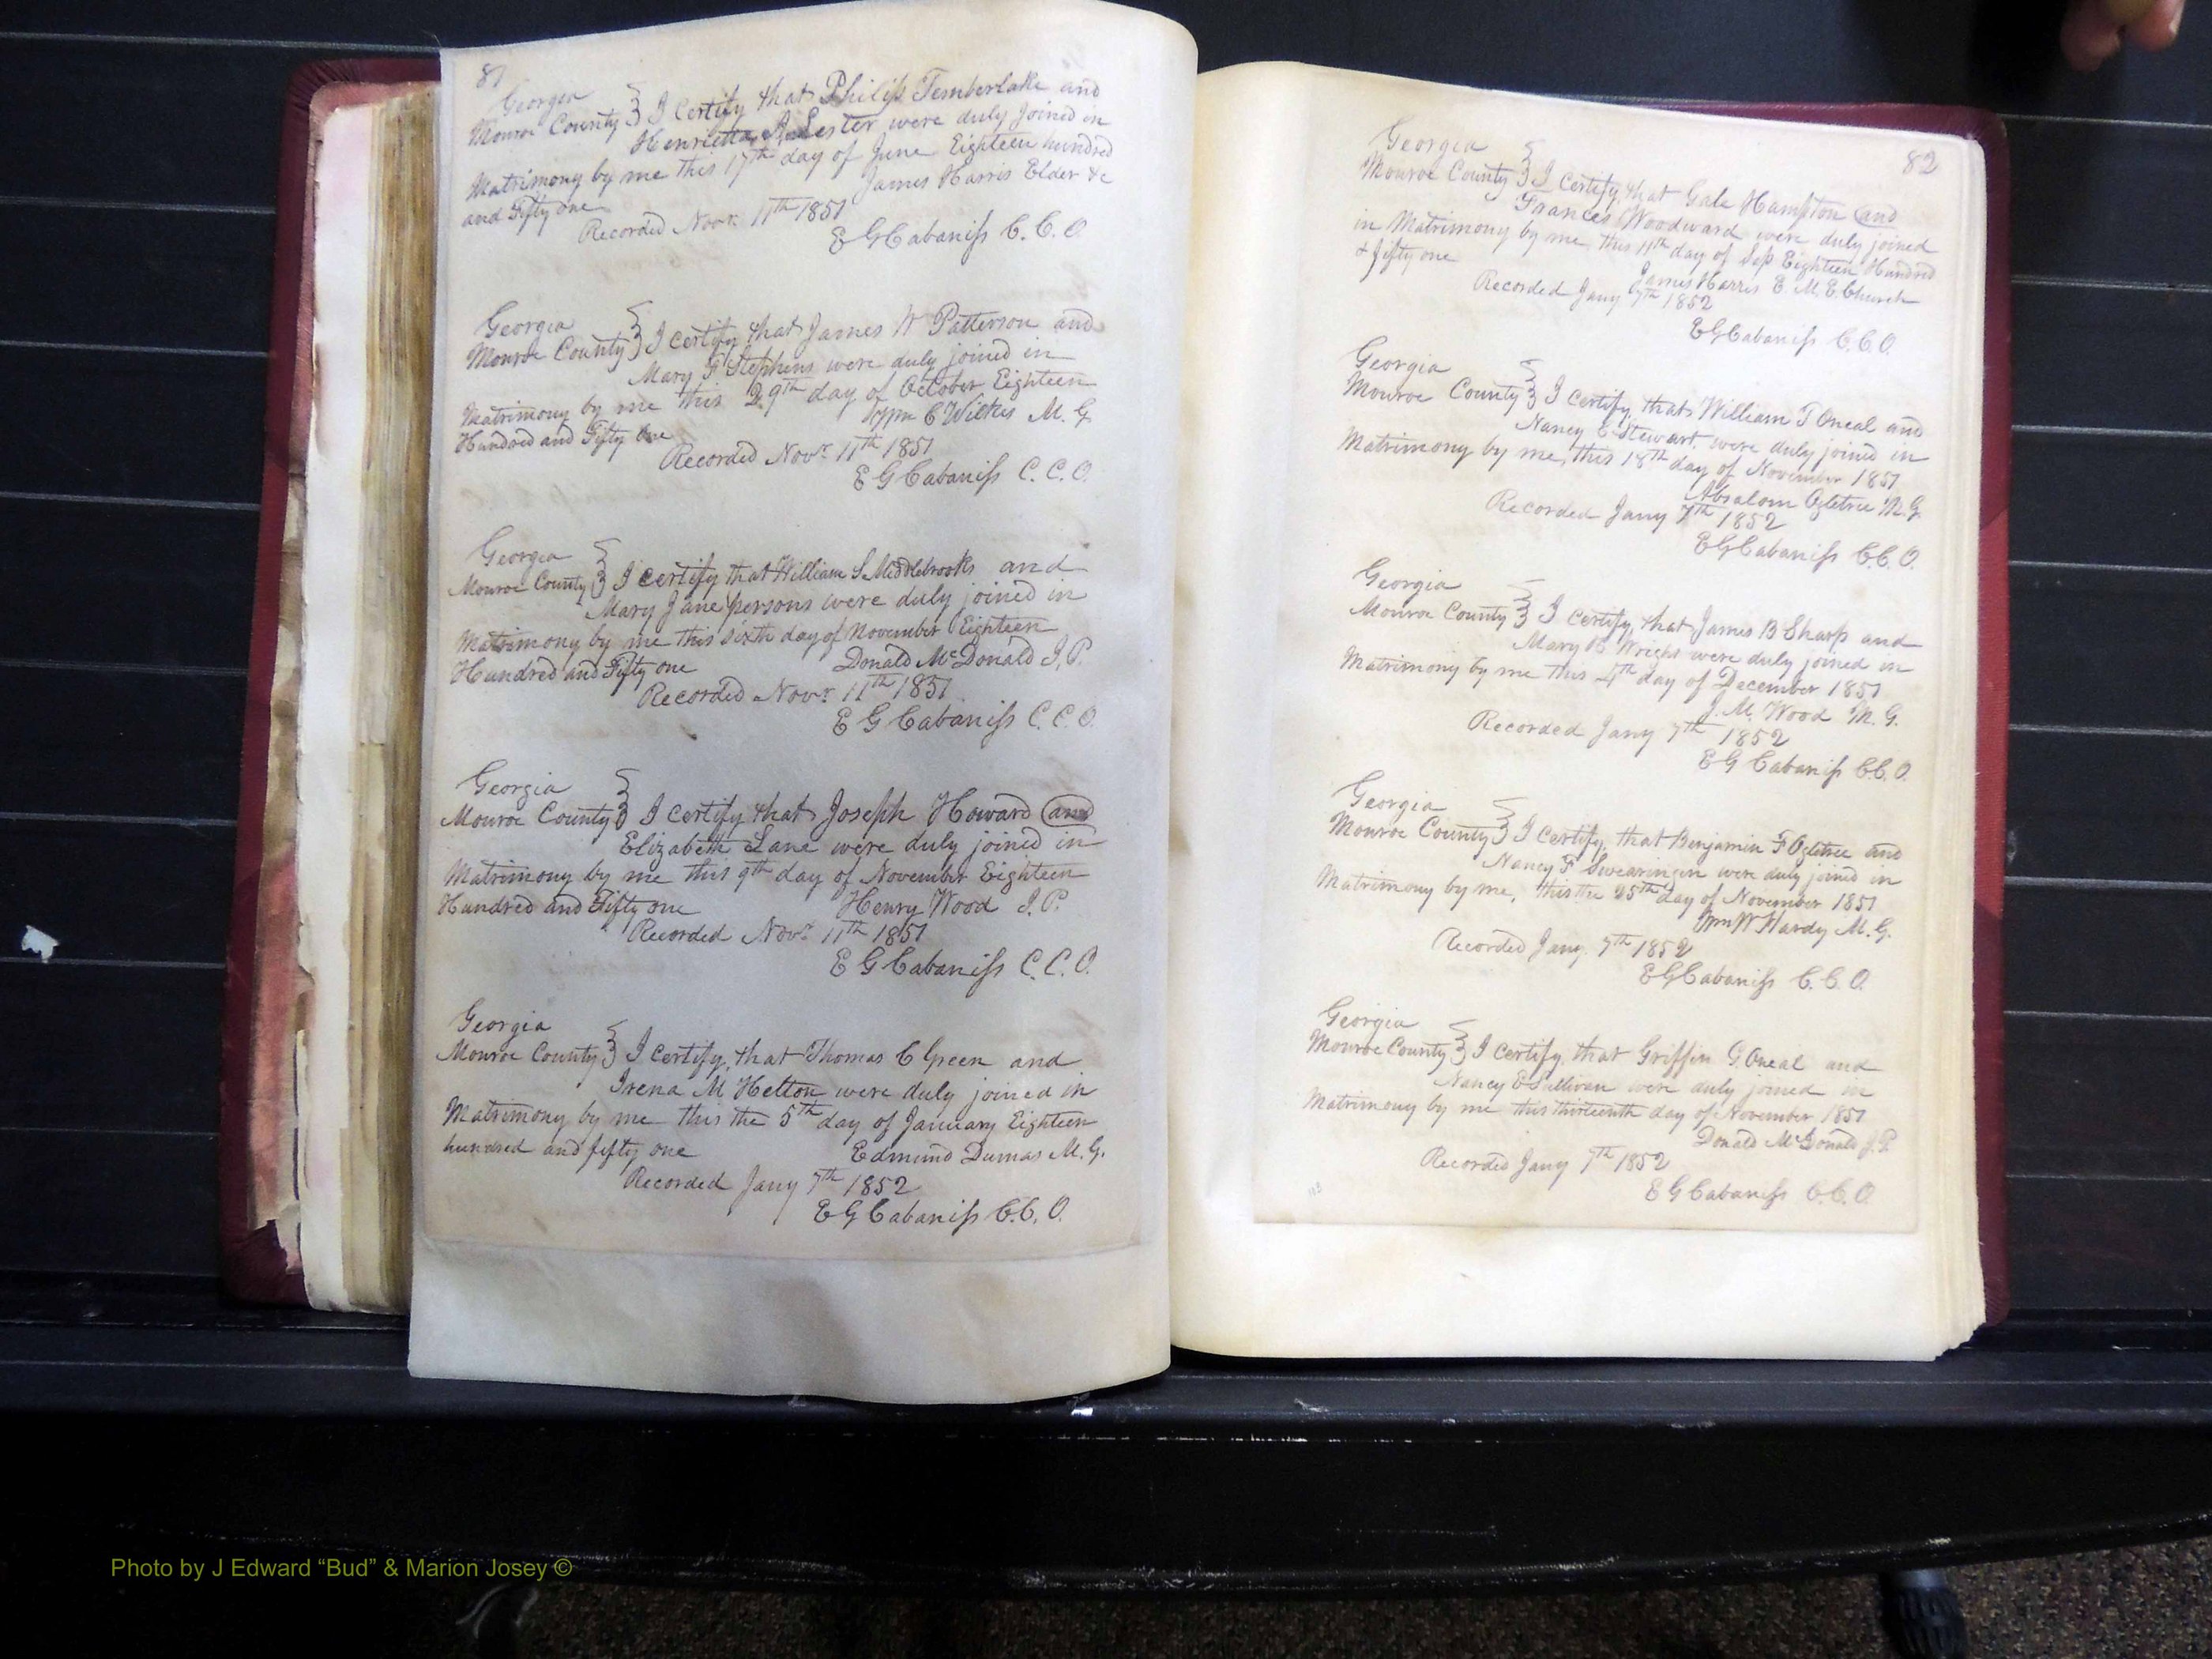 81
Georgia
Monroe County } I Certify that Philip Temberlake and
Henrietta A Lester were duly Joined in
Matrimony by me this 17th day of June Eighteen hundred
and Fifty one James Harris Elder &c
Recorded Novr. 11th 1851
E G Cabaniss C. C. O
Georgia
Monroe County } I certify that James W Patterson and
Mary F Stephens were duly joined in
Matrimony by me this 29th day of October Eighteen
Hundred and Fifty One Wm C Wilkes M. G
Recorded Novr 11th 1851
E G Cabaniss C. C. O.
Georgia
Monroe County } I certify that William S Middlebrooks and
Mary Jane persons were duly joined in
Matrimony by me this sixth day of November Eighteen
Hundred and Fifty one Donald McDonald J. P.
Recorded Novr 11th 1851
E G Cabaniss C. C. O.
Georgia
Monroe County } I certify that Joseph Howard and
Elizabeth Lane were duly joined in
Matrimony by me this 9th day of November Eighteen
Hundred and Fifty one Henry Wood J. P.
Recorded Novr 11th 1851
E G Cabaniss C. C. O.
Georgia
Monroe County } I certify, that Thomas C Green and
Irena M Helton were duly joined in
Matrimony by me this the 5th day of January Eighteen
hundred and fifty one Edmund Dumas M. G.
Recorded Jany 7th 1852
E G Cabaniss C. C. O.
82
Georgia
Monroe County } I Certify, that Gale Hampton and
Frances Woodward were duly joined
in Matrimony by me this 11th day of Sep Eighteen Hundred
& fifty one James Harris E. M. E. Church
Recorded Jany 7th 1852
E G Cabaniss C. C. O.
Georgia
Monroe County } I Certify, that William T Oneal and
Nancy E Stewart were duly joined in
Matrimony by me, this 18th day of November 1851
Absalom Ogletree M. G.
Recorded Jany 7th 1852
E G Cabaniss C. C. O.
Georgia
Monroe County } I Certify, that James B Sharp and
Mary B Wright were duly joined in
Matrimony by me this 4th day of December 1851
J. M. Wood M. G.
Recorded Jany 7th 1852
E G Cabaniss C. C. O.
Georgia
Monroe County } I Certify, that Benjamin F Ogletree and
Nancy F Swearingen were duly joined in
Matrimony by me, this the 25th day of November 1851
Wm W Hardy M. G.
Recorded Jany. 7th 1852
E G Cabaniss C. C. O.
Georgia
Monroe County } I certify, that Griffin G Oneal and
Nancy E Sullivan were duly joined in
Matrimony by me this thirteenth day of November 1851
Donald McDonald J. P.
Recorded Jany 7th 1852
E G Cabaniss C. C. O.
Photo by J Edward “Bud” & Marion Josey ©